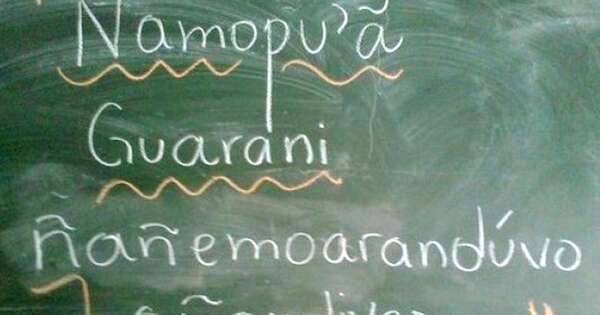 Namopu'ã
Guarani
ñañemoarandúvo